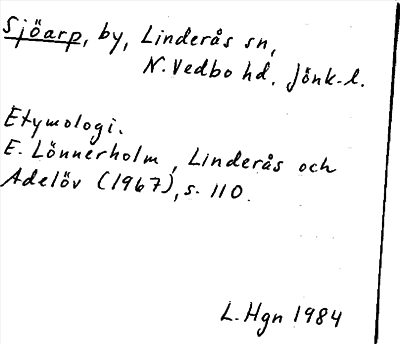 Sjöarp, by, Linderås sn,
N. Vedbo hd. Jönk-l.
Etymologi.
E. Lönnerholm, Linderås och
Adelöv (1967), s. 110.
L. Hgn 1984